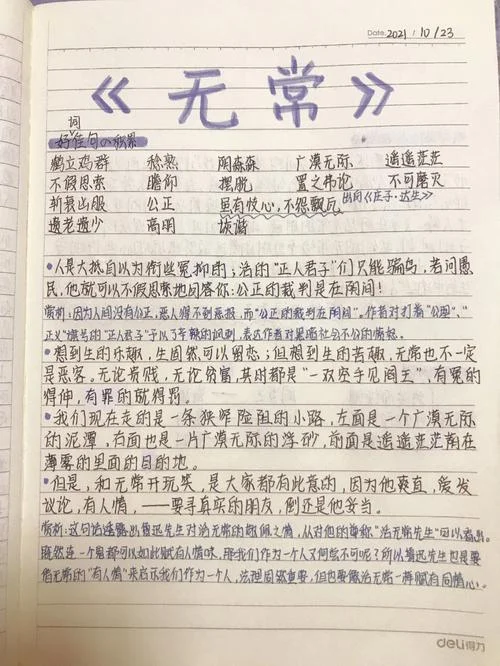 Date. 2021 / 10 / 23
《无常》
词
好佳句の积累
鹤立鸡群 稔熟 阴森森 广漠无际 遥遥茫茫
不假思索 瞻仰 摆脱 置之弗论 不可磨灭
斩衰凶服 公正 虽有忮心,不怨飘瓦 出问《庄子·达生》
遗老遗少 高明 诙谐
•人是大抵自以为衔些冤抑的;活的“正人君子”们只能骗鸟,若问愚
民,他就可以不假思索地回答你:公正的裁判是在阴间!
赏析:因为人间没有公正,恶人得不到恶报,而“公正的裁判在阴间”。作者对打着“公理”、“
正义”旗号的“正人君子”予以了辛辣的讽刺,表达作者对黑暗社会不公的愤怒。
•想到生的乐趣,生固然可以留恋;但想到生的苦趣,无常也不一定
是恶客。无论贵贱,无论贫富,其时都是“一双空手见阎王”,有冤的
得伸,有罪的就得罚。
•我们现在走的是一条狭窄险阻的小路,左面是一个广漠无际
的泥潭,右面也是一片广漠无际的浮砂,前面是遥遥茫茫荫在
薄雾的里面的目的地。
•但是,和无常开玩笑,是大家都有此意的,因为他爽直,爱发
议论,有人情,——要寻真实的朋友,倒还是他妥当。
赏析:这句话透露出鲁迅先生对活无常的敬佩之情,从对他的尊称“活无常先生”可以看出。
既然连一个鬼都可以如此赋有人情味,那我们作为一个人又何尝不可呢?所以鲁迅先生也是要
借无常的“有人情”来启示我们作为一个人,法理固然重要,但也要像活无常一样赋有同情心!
deli得力